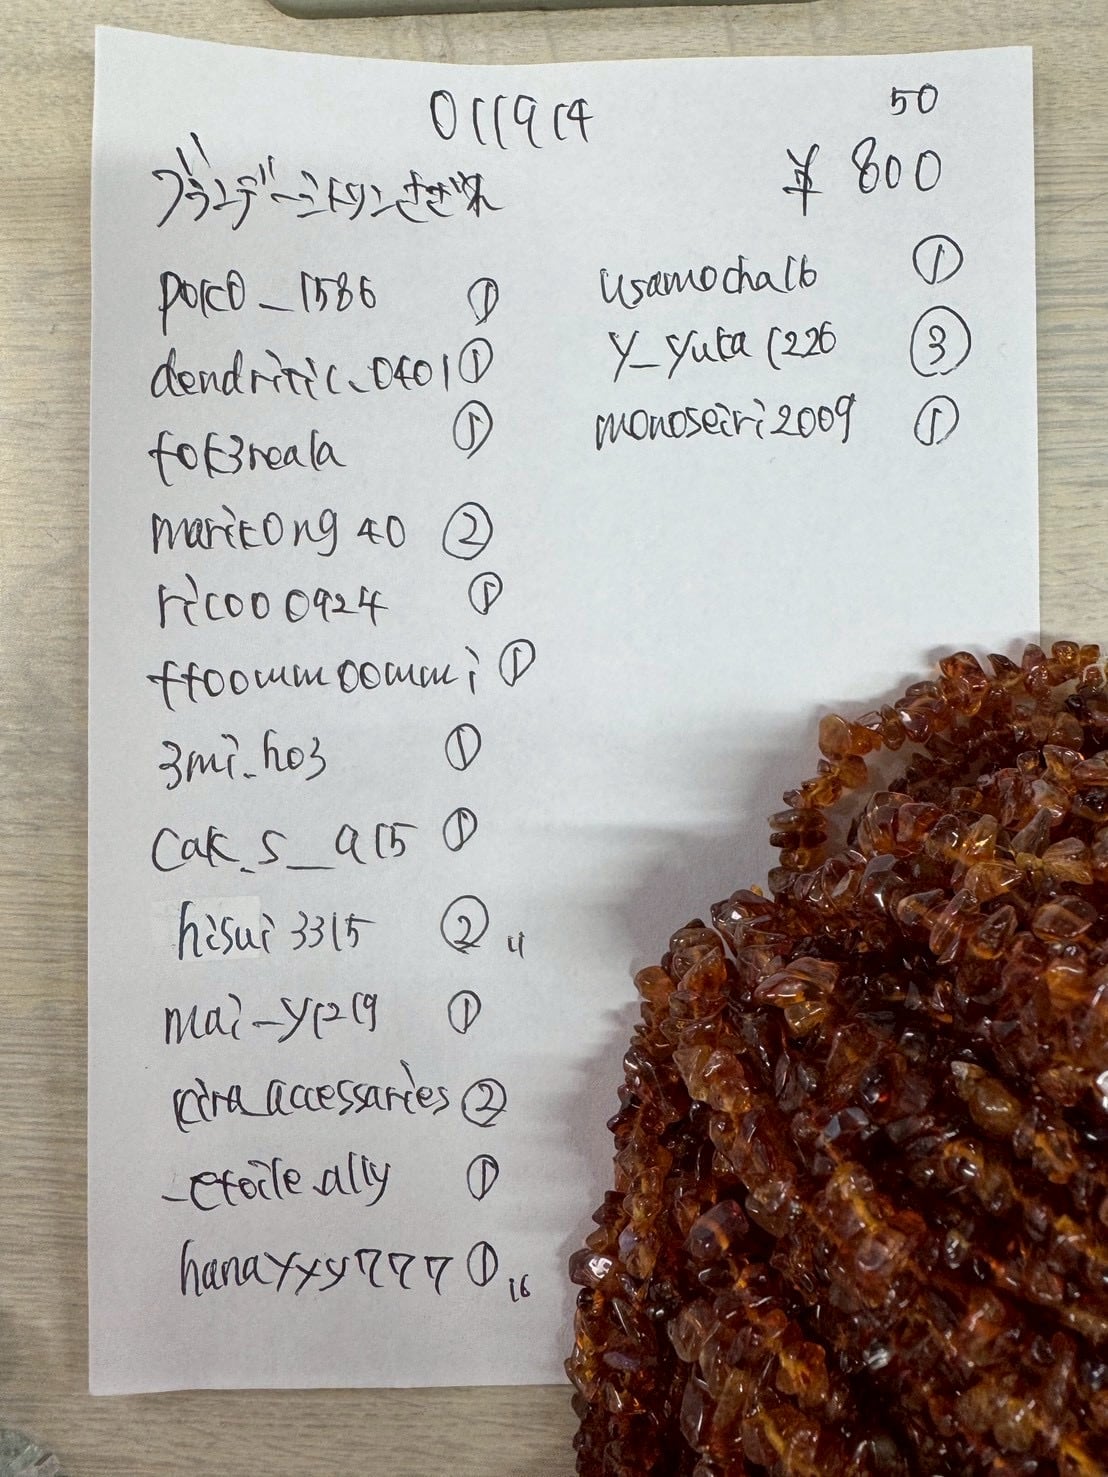 011914
50
ブランデーシトリンさざれ
¥800
poco_1586 ①
dendritic_0401 ①
fof3reala ①
maritong40 ②
rico000924 ①
ff00mm00mmi ①
3mi_ho3 ①
cak_s__915 ①
hisui3315 ② 11
mai_y1219 ①
kira_accessaries ②
_etoile.ally ①
hanayyy777 ① 16
usamocha16 ①
y_yuta1226 ③
monoseiri2009 ①